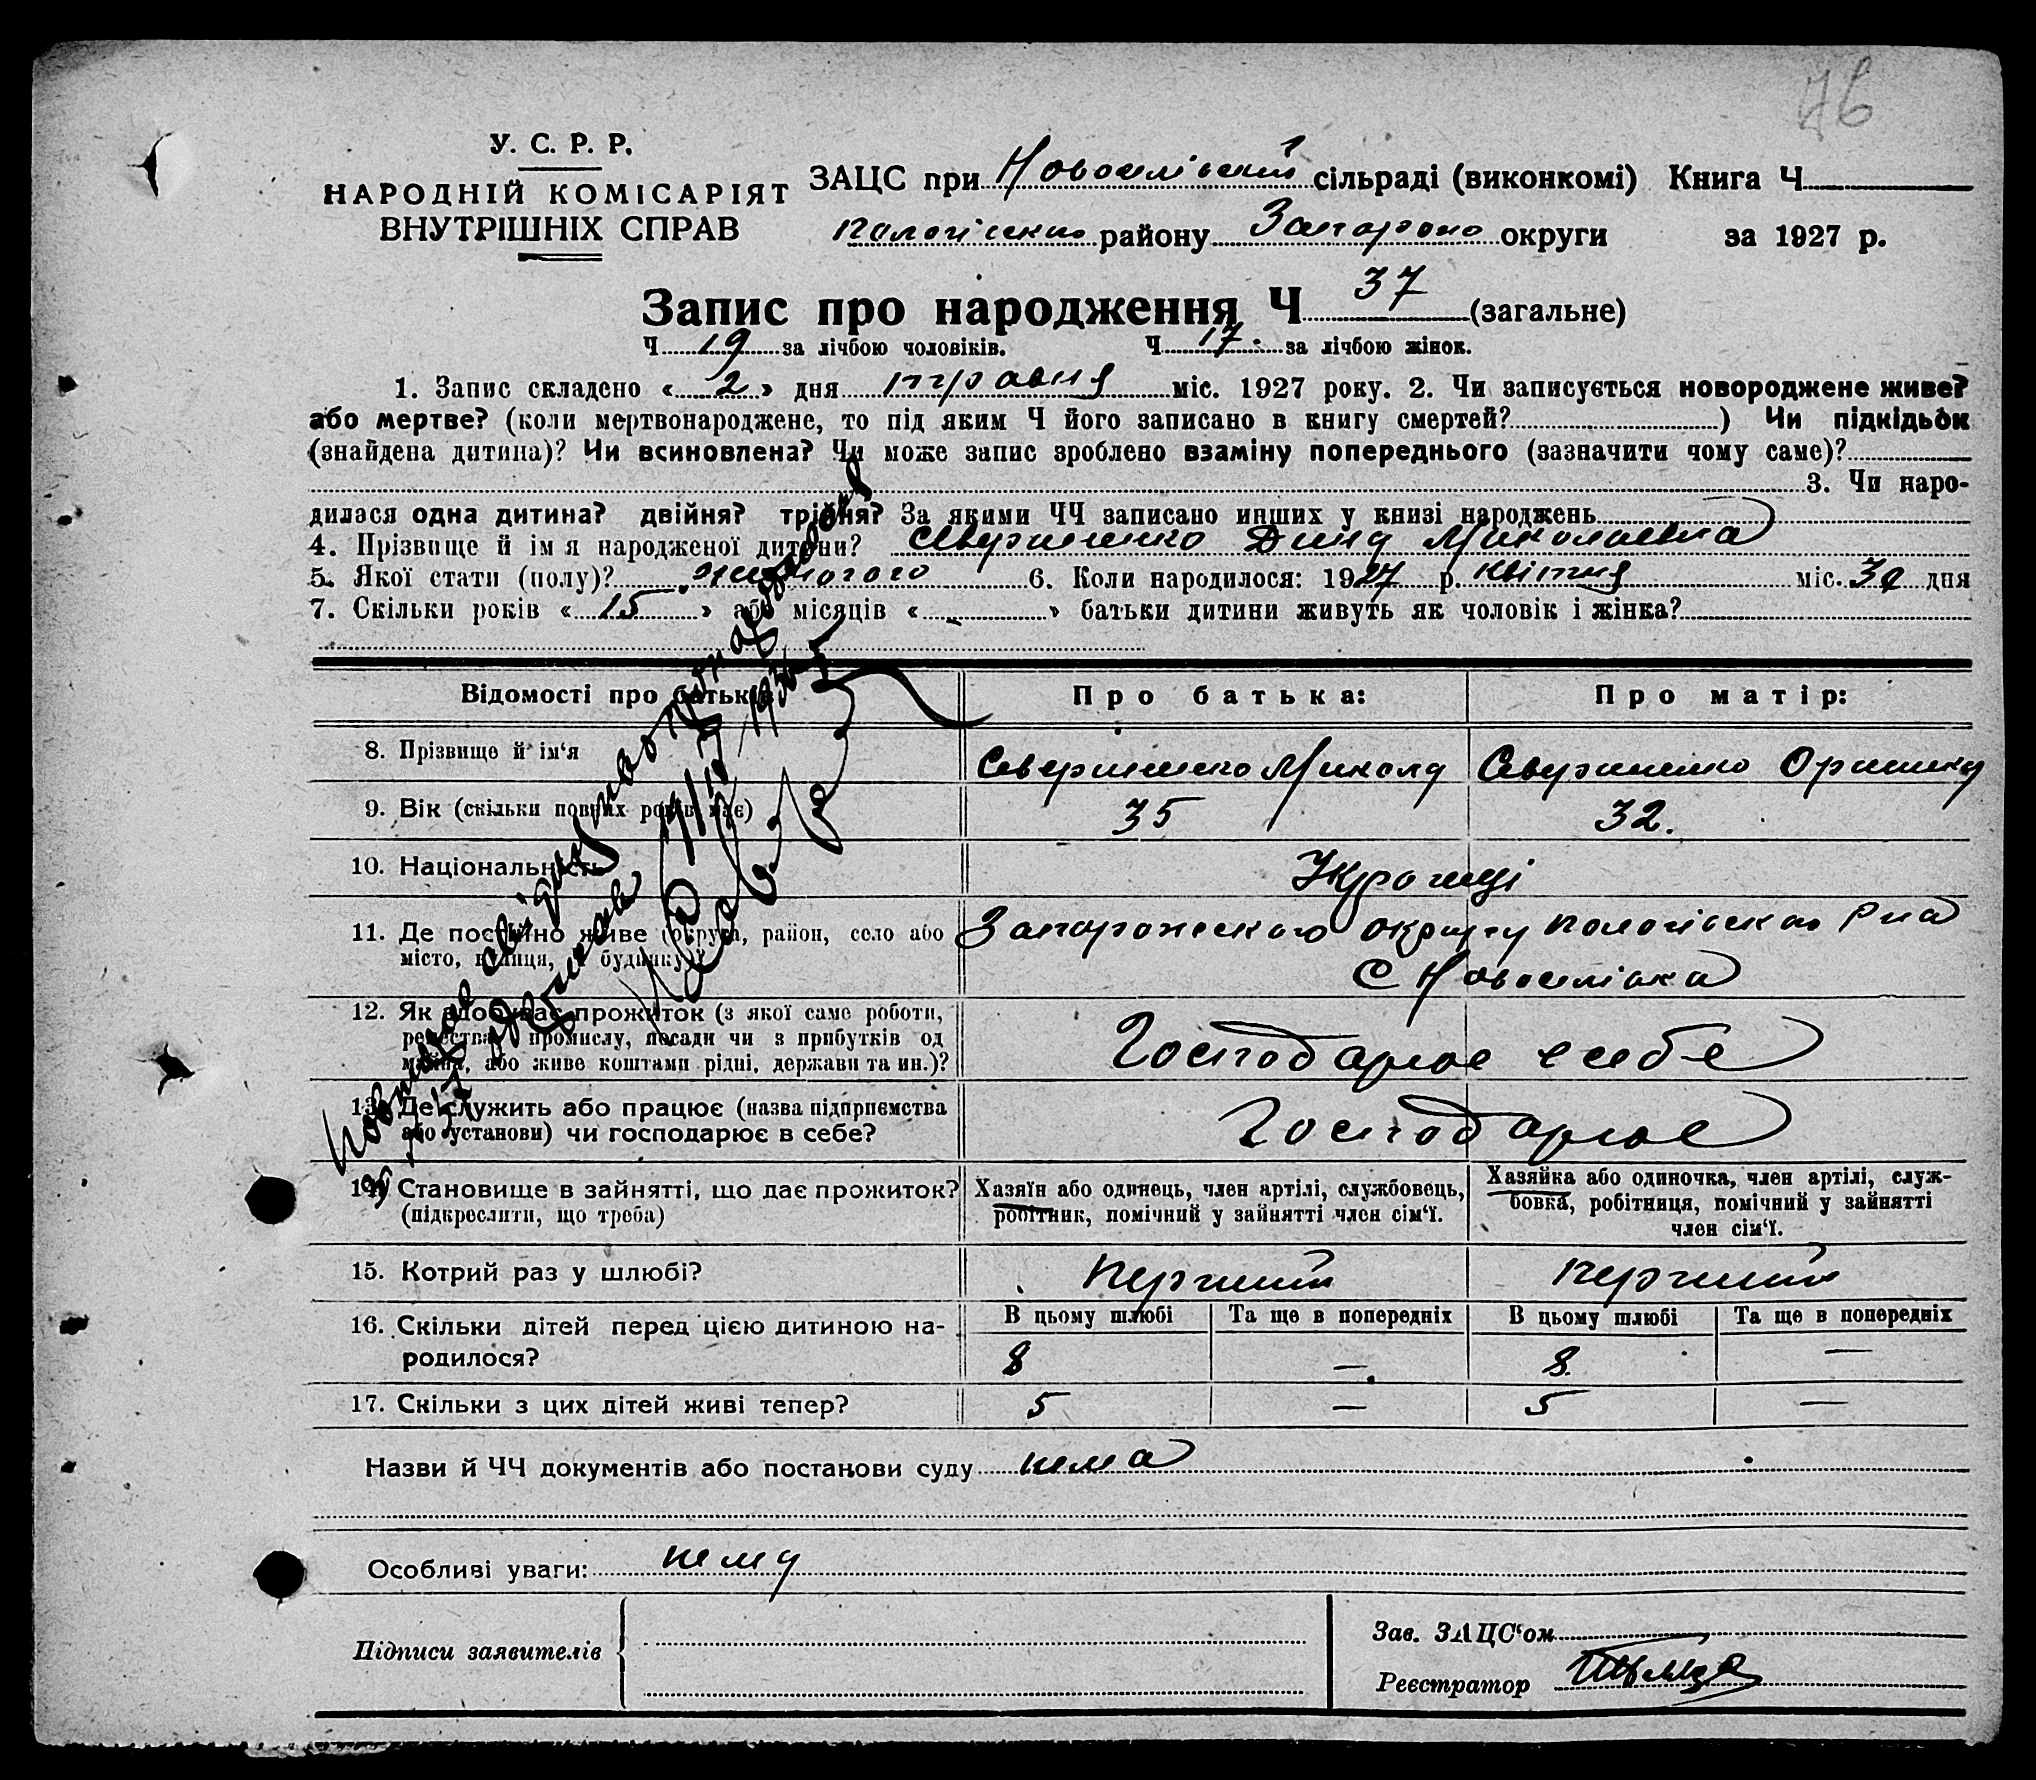 76
У. С. Р. Р.
НАРОДНІЙ КОМІСАРІЯТ
ВНУТРІШНІХ СПРАВ
ЗАЦС при Новоселівській сільраді (виконкомі) Книга Ч
Пологівського району Запорізької округи за 1927 р.
Запис про народження Ч 37 (загальне)
Ч 19 за лічбою чоловіків. Ч 17. за лічбою жінок.
1. Запис складено « 2 » дня травня міс. 1927 року. 2. Чи записується новороджене живе?
або мертве? (коли мертвонароджене, то під яким Ч його записано в книгу смертей? ) Чи підкідьок
(знайдена дитина)? Чи всиновлена? Чи може запис зроблено взаміну попереднього (зазначити чому саме)?
3. Чи наро-
дилася одна дитина? двійня? трійня? За якими ЧЧ записано инших у книзі народжень
4. Прізвище й ім я народженої дитини? Севериненко Дина Миколаевна
5. Якої стати (полу)? жіночого 6. Коли народилося: 1927 р. квітня міс. 30 дня
7. Скільки років « 15 » або місяців « - » батьки дитини живуть як чоловік і жінка?
Відомості про батьків Про батька: Про матір:
8. Прізвище й ім'я Севериненко Микола Севериненко Оришка
9. Вік (скільки повних років має) 35 32.
10. Національність Українці
11. Де постійно живе (округа, район, село або Запорожського округу Пологівського Р-на
місто, вулиця, Ч будинку)? С Новоселівка
12. Як здобуває прожиток (з якої саме роботи,
ремества, промислу, посади чи з прибутків од Господарює в себе
майна, або живе коштами рідні, держави та ин.)?
13. Де служить або працює (назва підприємства Господарює
або установи) чи господарює в себе?
14. Становище в зайнятті, що дає прожиток? Хазяїн або одинець, член артілі, службовець, Хазяйка або одиночка, член артілі, служ-
(підкреслити, що треба) робітник, помічний у зайнятті член сім'ї. бовка, робітниця, помічний у зайнятті
член сім'ї.
15. Котрий раз у шлюбі? перший перший
16. Скільки дітей перед цією дитиною на- В цьому шлюбі Та ще в попередніх В цьому шлюбі Та ще в попередніх
родилося? 8 — 8. —
17. Скільки з цих дітей живі тепер? 5 — 5 —
Назви й ЧЧ документів або постанови суду нема
Особливі уваги: нема
Підписи заявителів
Зав. ЗАЦС'ом
Реєстратор